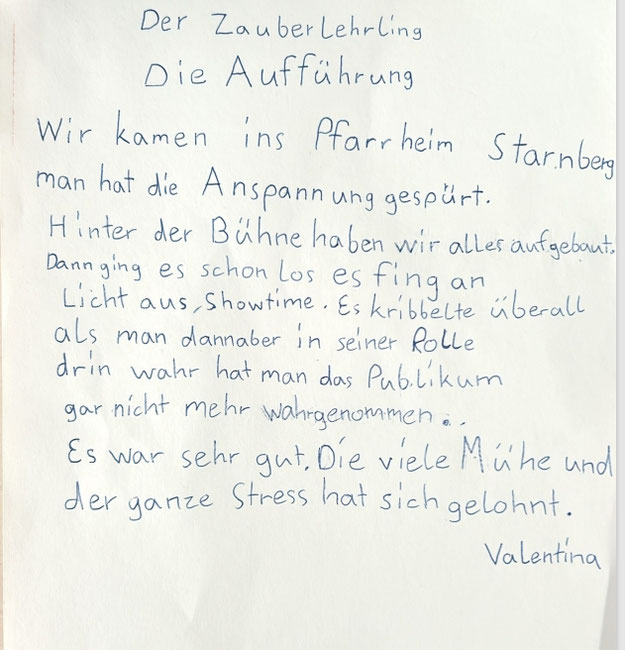 Der Zauberlehrling
Die Aufführung
Wir kamen ins Pfarrheim Starnberg
man hat die Anspannung gespürt.
Hinter der Bühne haben wir alles aufgebaut.
Dann ging es schon los es fing an
Licht aus, Showtime. Es kribbelte überall
als man dann aber in seiner Rolle
drin wahr hat man das Publikum
gar nicht mehr wahrgenommen..
Es war sehr gut. Die viele Mühe und
der ganze Stress hat sich gelohnt.
Valentina